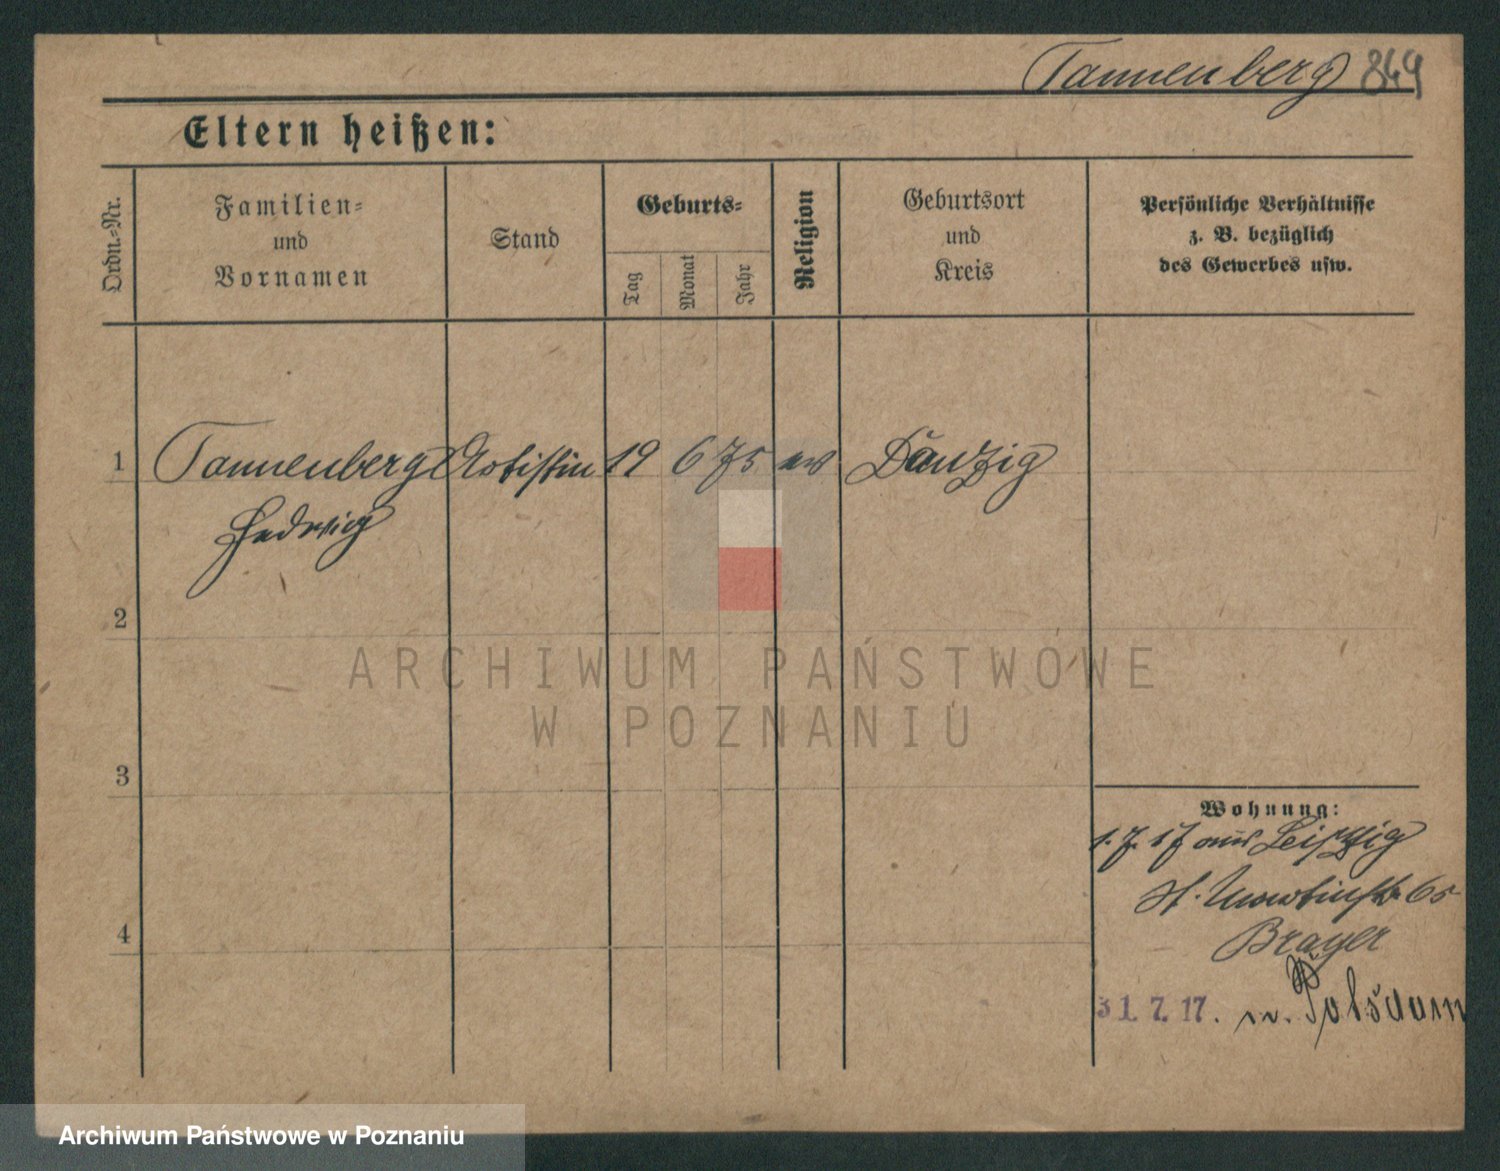 Tannenberg 849
Eltern heißen:
Ordn.-Nr.
Familien-
und
Vornamen
Stand
Geburts-
Tag
Monat
Jahr
Religion
Geburtsort
und
Kreis
Persönliche Verhältnisse
z. B. bezüglich
des Gewerbes usw.
1 Tannenberg Artistin 19 6 75 ev Danzig
Hedwig
2
3
4
Wohnung:
1. 7. 17 aus Leipzig
St. Martinstr. 65
Brayer
31. 7. 17. n. Potsdam
ARCHIWUM PAŃSTWOWE
W POZNANIU
Archiwum Państwowe w Poznaniu